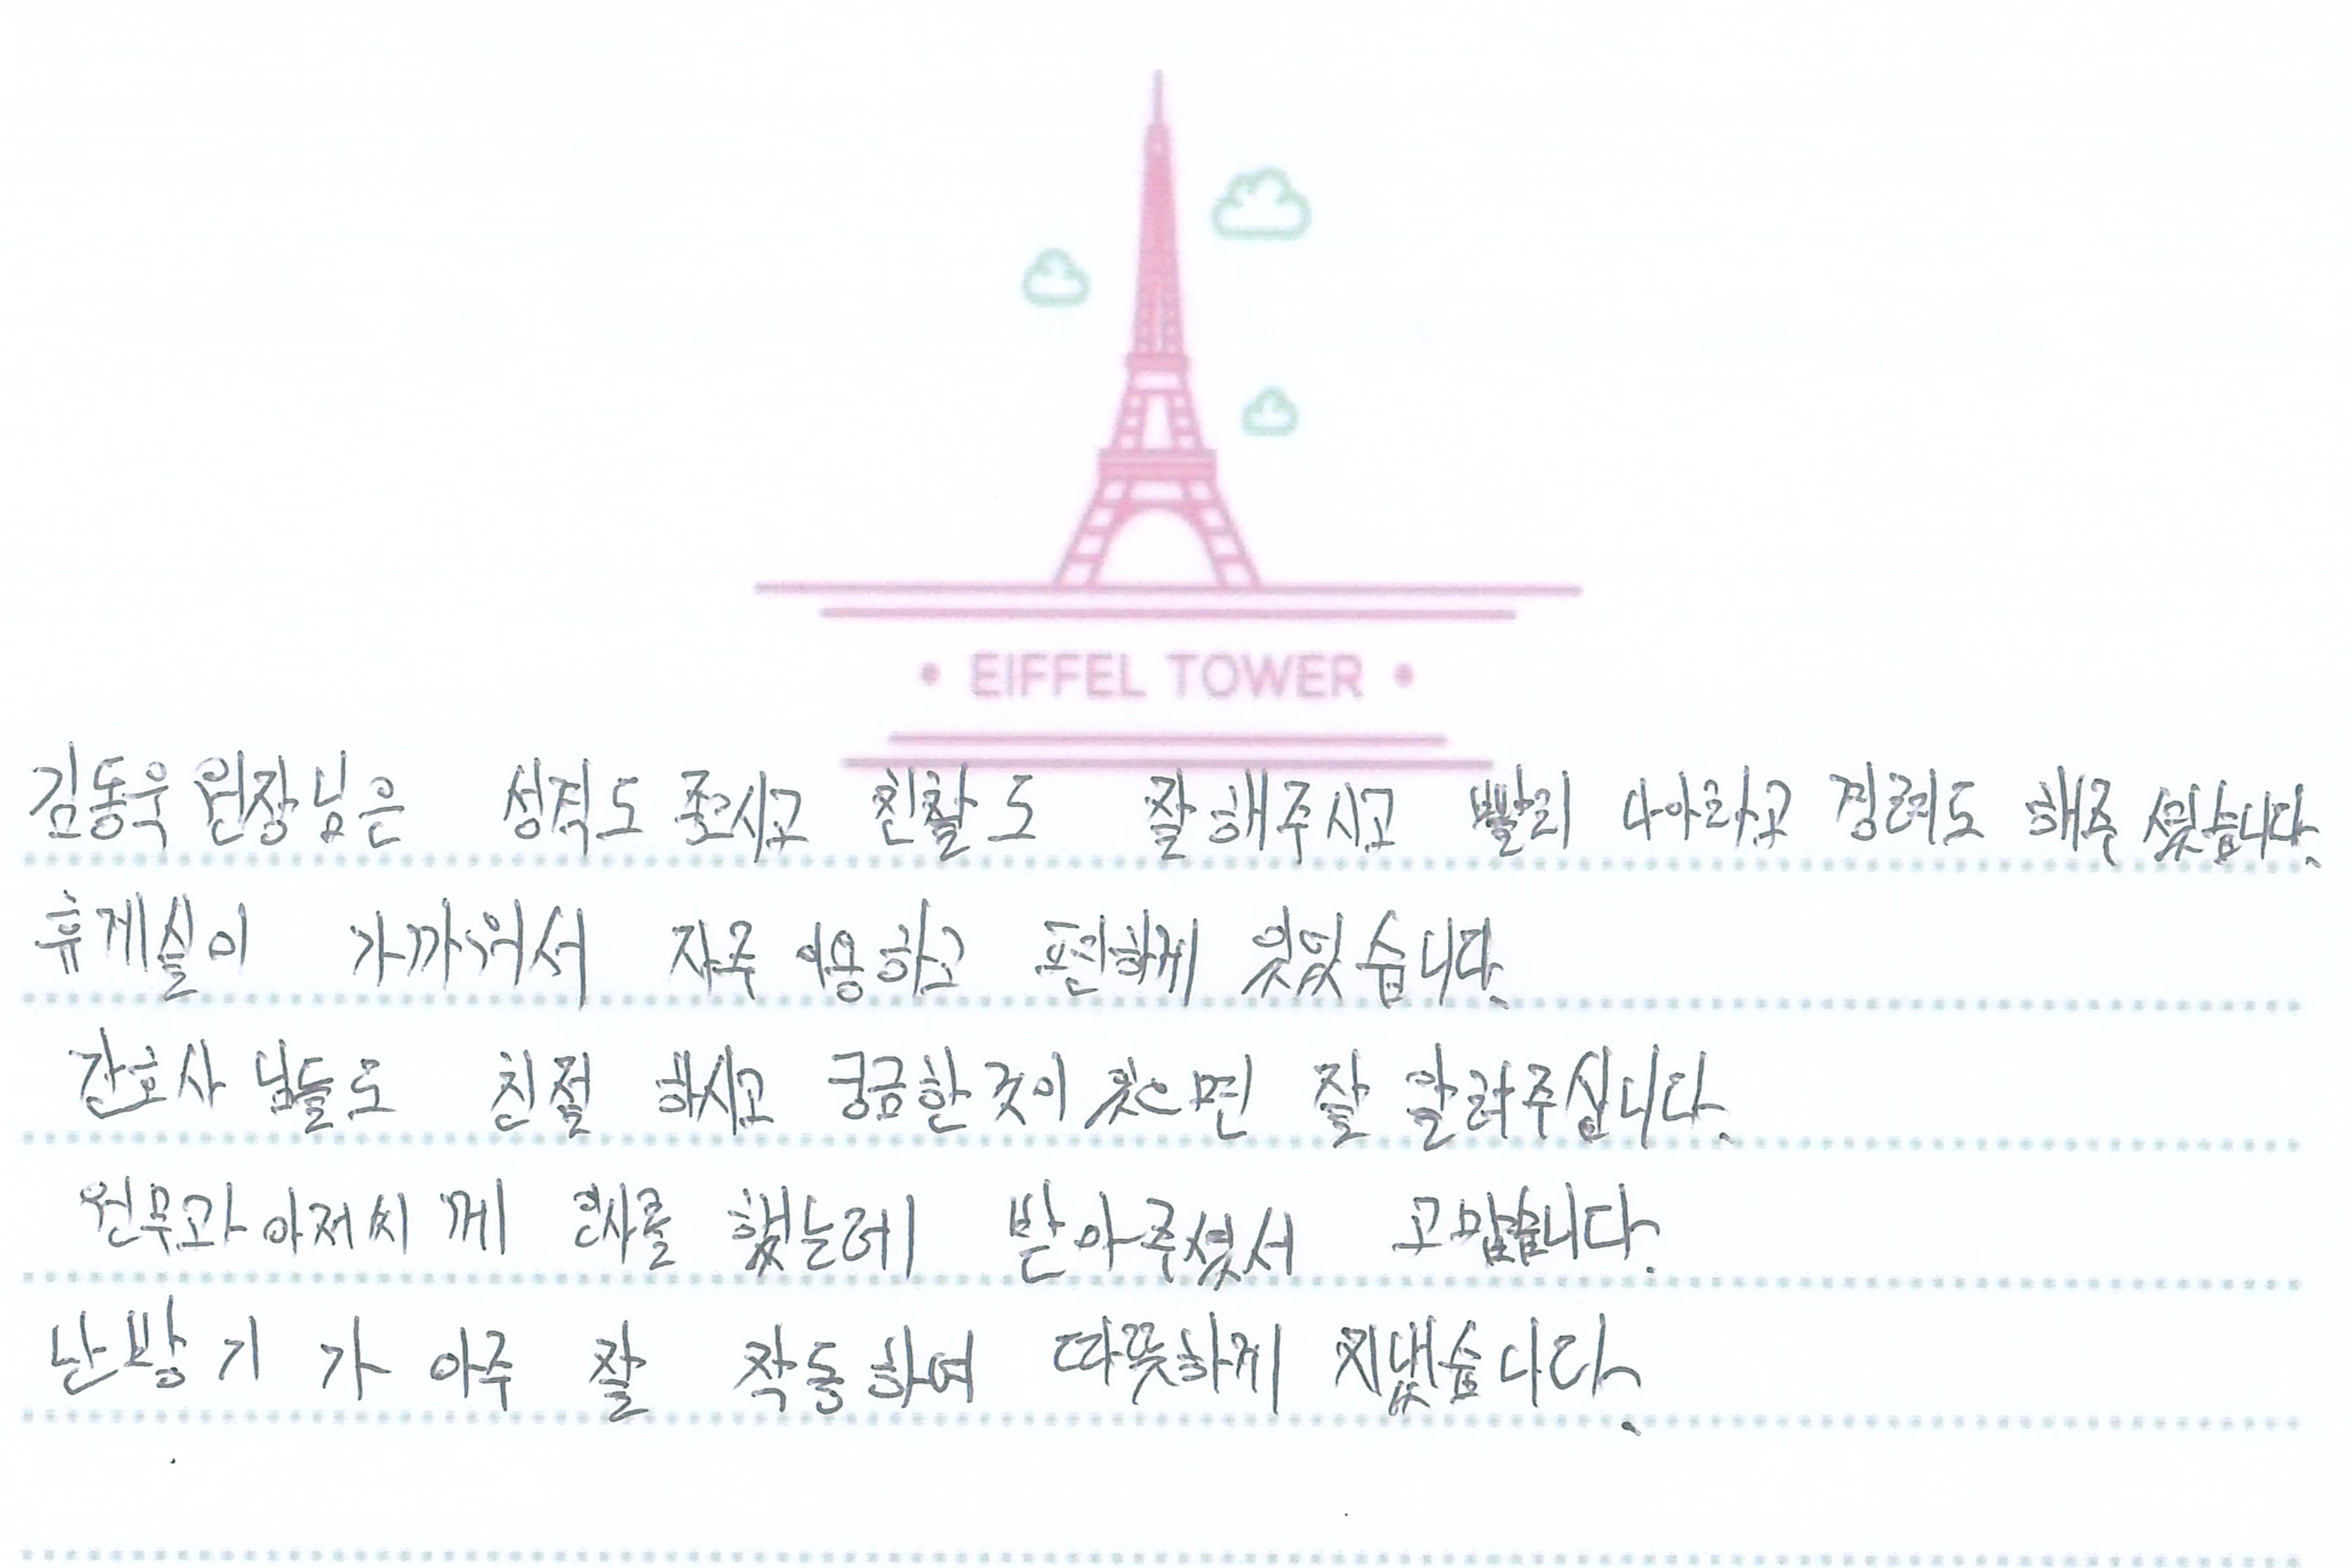 EIFFEL TOWER
김동욱 원장님은 성적도 좋시고 친찰도 잘해주시고 빨리 나아라고 경려도 해주셨습니다.
휴게실이 가까워서 자주 이용하고 편하게 있었습니다.
간호사님들도 친절하시고 궁금한것이 있으면 잘 알려주십니다.
원무과 아저씨께 인사를 했는데 받아주셨서 고맙습니다.
난방기가 아주 잘 작동하여 따뜻하게 지냈습니다.